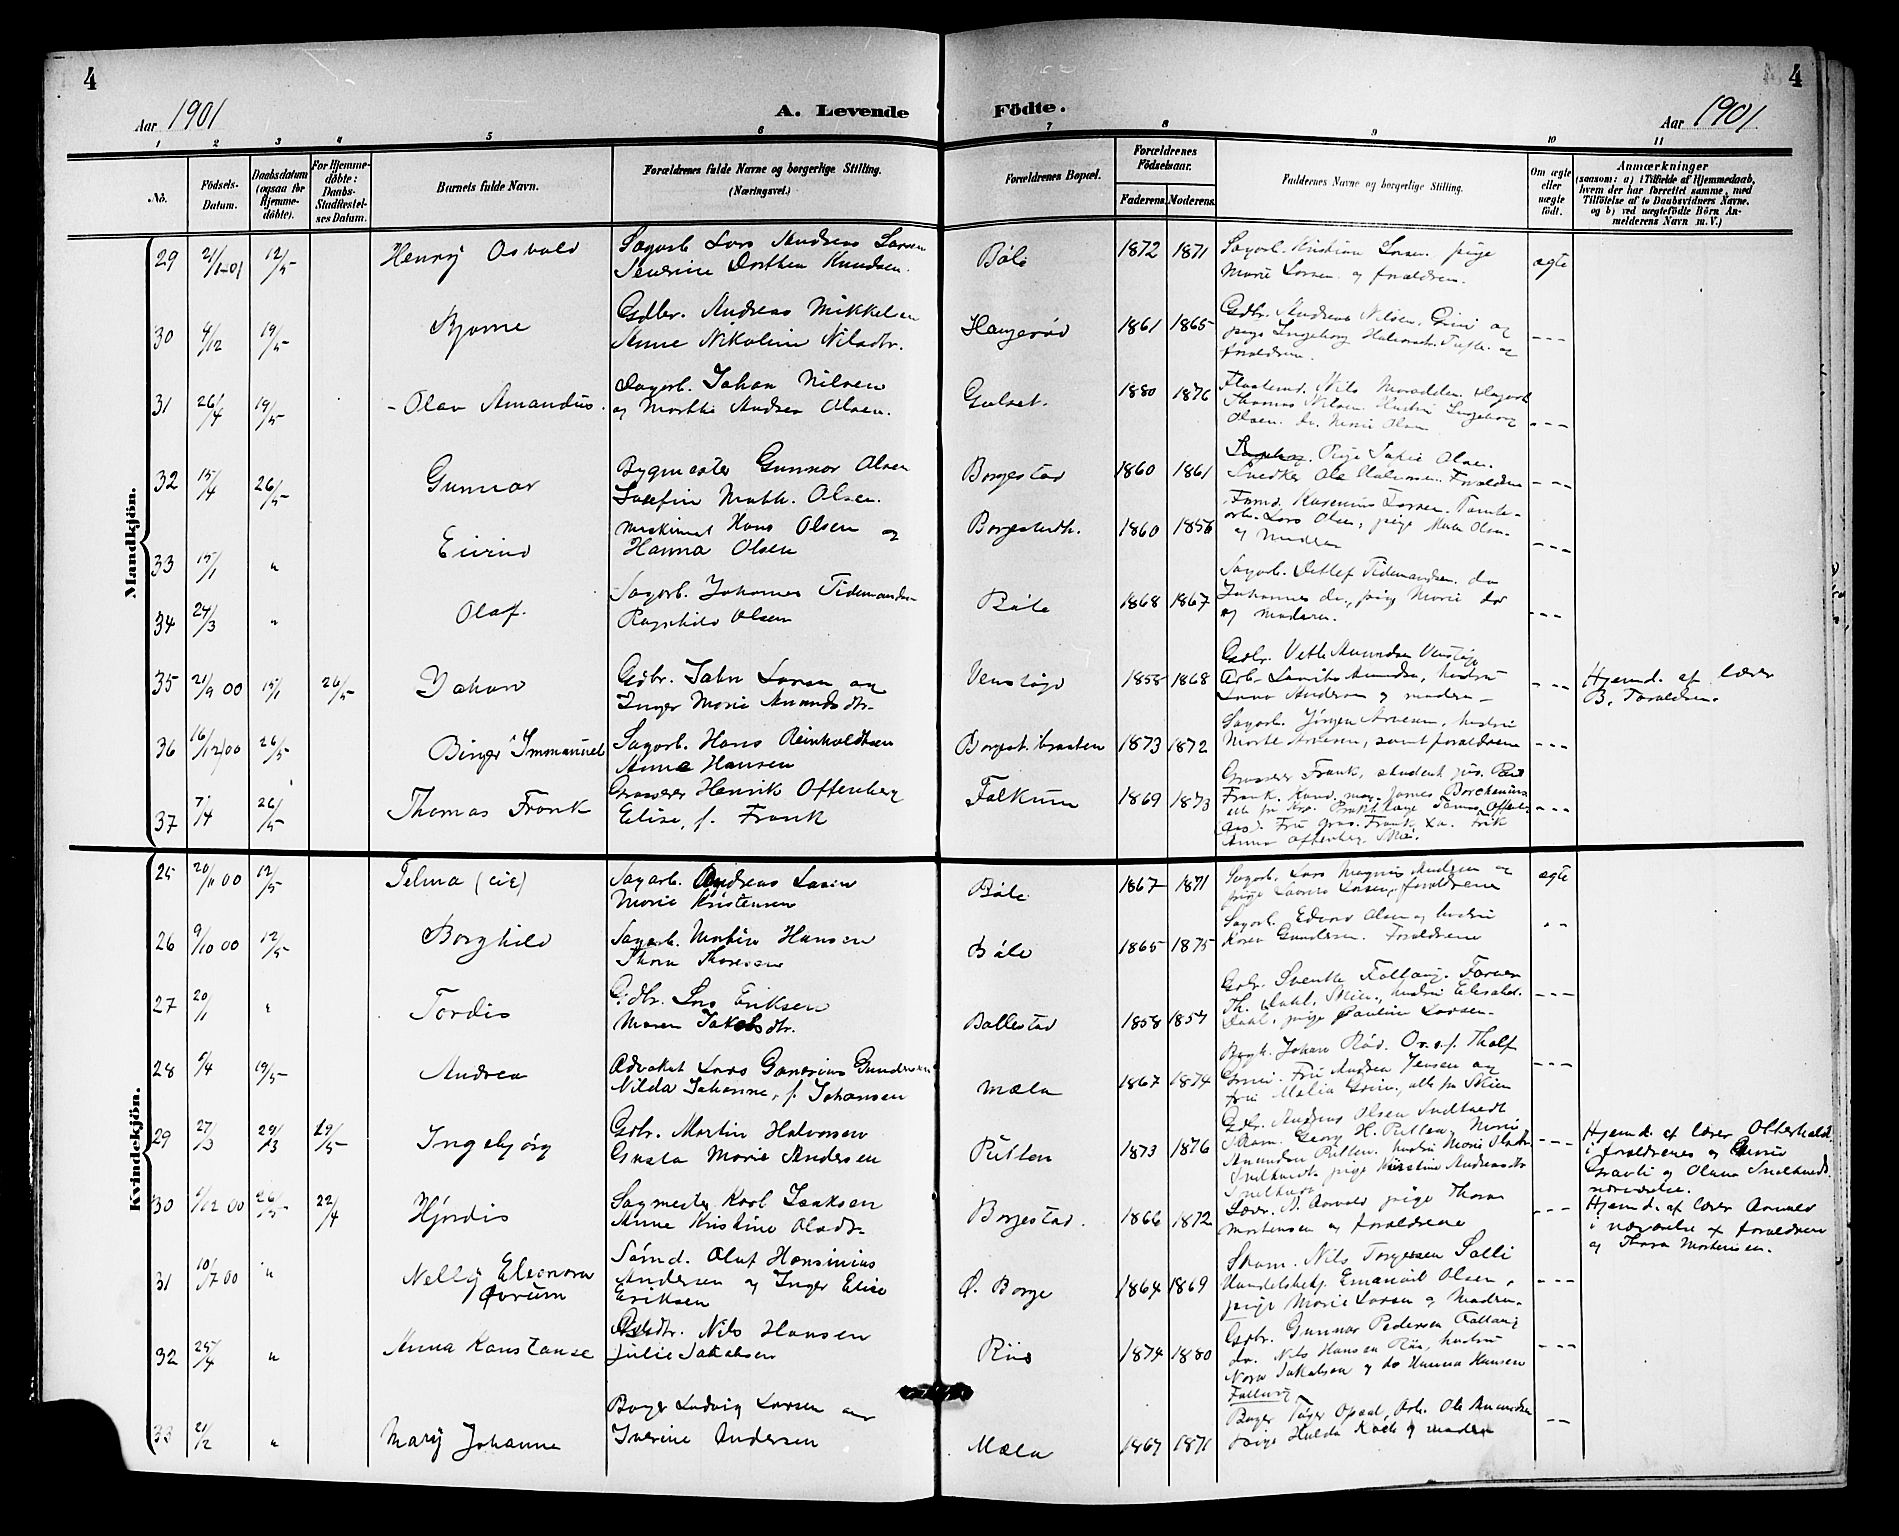 4
4
Aar 1901
A. Levende Födte.
Aar 1901
1 2 3 4 5 6 7 8 9 10 11
No.
Födsels-Datum.
Daabsdatum (ogsaa for Hjemme-döbte).
For Hjemme-döbte: Daabs-Stadfæstel-ses Datum.
Barnets fulde Navn.
Forældrenes fulde Navne og borgerlige Stilling. (Næringsvei.)
Forældrenes Bopæl.
Forældrenes Födselsaar.
Faderens. Moderens.
Faddernes Navne og borgerlige Stilling.
Om ægte eller uægte födt.
Anmærkninger (saasom: a) i Tilfælde af Hjemmedaab, hvem der har forrettet samme, med Tilföielse af to Daabsvidners Navne. og b) ved uægtefödte Börn An-melderens Navn m. V.)
Mandkjön.
29 21/1-01 12/5 Henry Osvald
Sagarb. Lars Andreas Larsen
Severine Dorthea Knudsen.
Böle 1872 1871
Sagarb. Kristian Larsen. pige
Marie Larsen og forældrene.
ægte
30 9/12 19/5 Bjarne
Gdbr. Andreas Mikkelsen
Anne Nikoline Nilsdtr.
Haugerød 1861 1865
Gdbr. Andreas Nilsen, Grini og
pige Ingeborg Halvorsdr. Tufte og
forældrene.
- - -
31 26/4 19/5 - Olav Amandus.
Sagarb. Johan Nilsen
og Marthe Andrea Olsen.
Gulset. 1880 1876
Thomas Nilsen. Hustru Ingeborg
Olsen. do. Marie Olsen
- - -
32 15/4 26/5 Gunnar
Bygmester Gunnar Olsen
Josefine Math. Olsen.
Borgestad 1860 1861
Pige Olsen.
Snedker Ole Halvorsen. Forældrene
- - -
33 15/1 " Eivind
Maskinist Hans Olsen og
Hanna Olsen
Borgestadh. 1860 1856
Lars Olsen, pige Olsen.
og Moderen
- - -
34 24/3 " Olaf.
Sagarb. Johannes Tidemandsen
Ragnhild Olsen
Böle 1868 1867
Sagarb. Detlef Tidemandsen. do
Johannes do., pige Marie do
og moderen.
- - -
35 21/9 00 15/1 26/5 Johan
Gdbr. John Larsen og
Inger Marie Amundsdtr.
Venstöp 1858 1868
Gdbr. Vetle Amundsen Venstöp
Arb. Lauritz Amundsen, hustru
Anna Andersen og moderen -
- - -
Hjemd. af lærer
B. Toraldsen.
36 16/12 00 26/5 Birger Immanuel
Sagarb. Hans Reinholdtsen
Anna Hansen
Borgest.braaten 1873 1872
Sagarb. Jörgen Arvesen, hustru
Marte Arvesen, samt forældrene
- - -
37 7/4 26/5 Thomas Frank
Grosserer Henrik Oftenberg
Elise, f. Frank
Falkum 1869 1873
Grosserer Frank, student jur. Paul
Frank. Kand. mag. James Borchenius
Fru gros. Frank,
Anna Oftenberg Skien.
- - -
Kvindekjön.
25 20/11 00 12/5 Telma (sic)
Sagarb. Andreas Larsen
Marie Kristensen
Böle 1867 1871
Sagarb. Lars Magnus Andersen og
pige Laura Larsen, forældrene
ægte
26 9/10 00 12/5 Borghild
Sagarb. Martin Hansen
Thora Thoresen
Böle 1865 1875
Sagarb. Edvard Olsen og hustru
Karen Gundersen. Forældrene
- -
27 20/1 " Tordis
Gdbr. Lars Eriksen
Maren Jakobsdtr.
Ballestad 1858 1857
Gdbr. Svenke Fallang. Farver
Th. Dahl, Skien., hustru
Dahl, pige Pauline Larsen.
- - -
28 1/4 19/5 Andrea
Advokat Lars Ganerius Gundersen
Nilda Johanne, f. Johansen
Mæla 1867 1874
Bygm. Johan Röd. O.r.s.f. Tholf
Grini. Fru Andrea Jensen og
fru Malia Grini, alle fra Skien
- - -
29 27/3 29/3 19/5 Ingebjörg
Gdbr. Martin Halvorsen
Gusta Marie Andersen
Putten 1873 1876
Gdbr. Andreas Olsen
Skom. Georg H. Putten, Marie
Amundsen Putten. hustru Marie
pige Kirstine Andreasdtr
- - -
Hjemd. af lærer Otterholt
i forældrenes og Gunnie
Gravli og Olava
nærværelse.
30 1/12 00 26/5 22/4 Hjördis
Sagmester Karl Isaksen
Anne Kristine Olsdtr.
Borgestad. 1866 1872
Lær. N. Aarvold pige Thora
Mortensen og forældrene
- - -
Hjemd. af lærer Aarvold
i nærværelse af forældrene
og Thora Mortensen.
31 10/7 00 " Nelly Eleonora
Jorum
Sömd. Oluf Hansinius
Andersen og Inger Elise
Eriksen
Ö. Borge 1864 1869
Skom. Nils Torgersen Solli
Handelsbetj. Emanuel Olsen,
pige Marie Larsen og Moderen.
- - -
32 25/4 " Anna Konstanse
Nils Hansen
Julie Jakobsen
Riis 1874 1880
Gdbr. Gunnar Pedersen Fallang
do. Nils Hansen Riis, hustru
Nora Jakobsen og do Hanna Hansen
Fallang
- - -
33 21/2 " Mary Johanne
Bager Ludvig Larsen og
Iverine Andersen
Mæla 1867 1871
Bager Töger Opsal, Arb. Ole Amundsen
pige Hulda Koch og moderen
- -